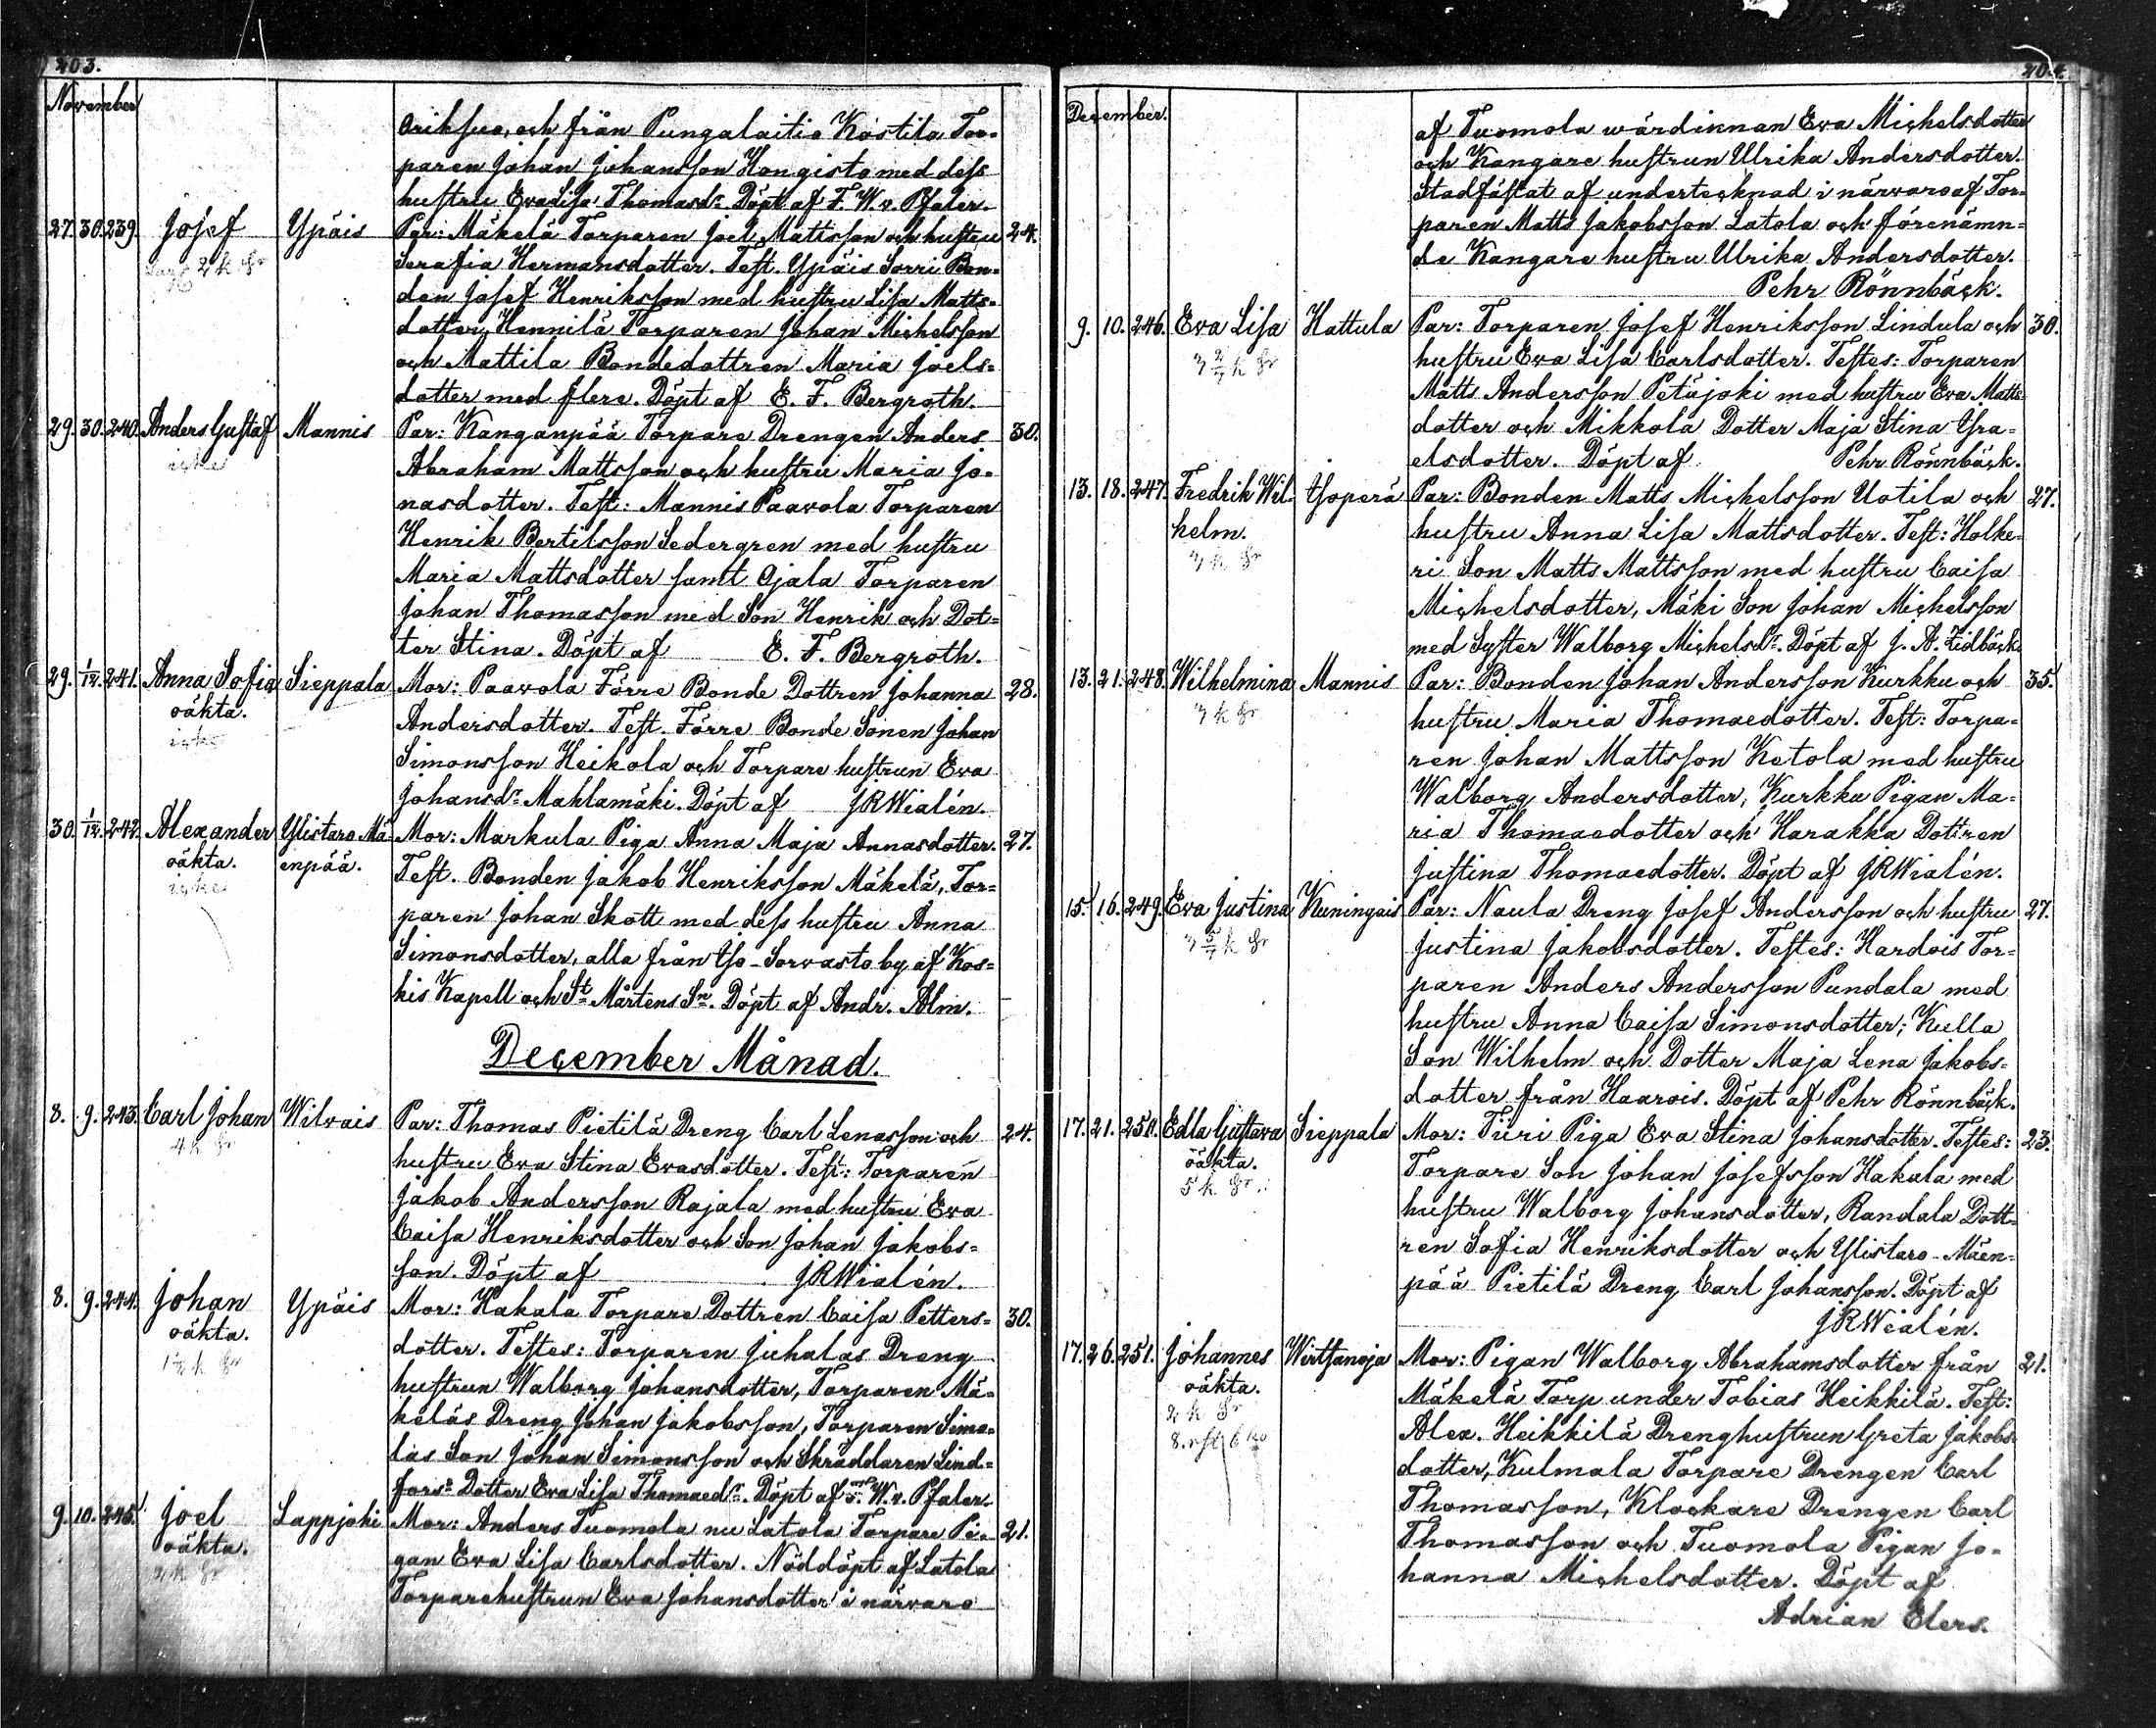 403.
November
Oriksuo, och från Pungalaitio Kostila Tor-
paren Johan Johansson Hongisto med dess
hustru Eva Lisa Thomasdr. Döpt af F. W. v. Pfaler.
27. 30. 239. Josef Ypäis Par: Mäkelä Torparen Joel Mattsson och hustru 24.
Serafia Hermansdotter. Test. Ypäis Sorri Bon-
den Josef Henriksson med hustru Lisa Matts-
dotter, Hennilä Torparen Johan Michelsson
och Mattila Bondedottren Maria Joels-
dotter med flere. Döpt af E. F. Bergroth.
29. 30. 240. Anders Gustaf Mannis Par: Kanganpää Torpare Drengen Anders 30.
Abraham Mattsson och hustru Maria Jo-
nasdotter. Test: Mannis Paavola Torparen
Henrik Bertilsson Sedergren med hustru
Maria Mattsdotter samt Ojala Torparen
Johan Thomasson med Son Henrik och Dot-
ter Stina. Döpt af E. F. Bergroth.
29. 1/12. 241. Anna Sofia Sieppala Mor: Paavola Förre Bonde Dottren Johanna 28.
oäkta. Andersdotter. Test. Förre Bonde Sonen Johan
Simonsson Heikola och Torpare hustrun Eva
Johansdr Mahlamäki. Döpt af JRWialén.
30. 1/12. 242. Alexander Ylistaro Mä- Mor: Markula Piga Anna Maja Annasdotter. 27.
oäkta. enpää. Test. Bonden Jakob Henriksson Mäkelä, Tor-
paren Johan Skott med dess hustru Anna
Simonsdotter, alla från Iso-Sorvasto by af Kos-
kis Kapell och St Mårtens Sn. Döpt af Andr. Alm.
December Månad.
8. 9. 243. Carl Johan Wilvais Par: Thomas Pietilä Dreng Carl Lenasson och 24.
4 k gr hustru Eva Stina Evasdotter. Test: Torparen
Jakob Andersson Rajala med hustru Eva
Caisa Henriksdotter och Son Johan Jakobs-
son. Döpt af JRWialén.
8. 9. 244. Johan Ypäis Mor: Hakala Torpare Dottren Caisa Petters- 30.
oäkta. dotter. Testes: Torparen Juhalas Dreng
hustrun Walborg Johansdotter, Torparen Mä-
keläs Dreng Johan Jakobsson, Torparen Simo-
las Son Johan Simonsson och Skräddaren Lind-
fors Dotter Eva Lisa Thomaedr. Döpt af F. W. v. Pfaler.
9. 10. 245. Joel Lappjoki Mor: Anders Tuomola nu Latola Torpare Pi- 21.
oäkta. gan Eva Lisa Carlsdotter. Nöddöpt af Latola
Torparehustrun Eva Johansdotter i närvaro
404.
December.
af Tuomola wärdinnan Eva Michelsdotter
och Kangare hustrun Ulrika Andersdotter.
Stadfästat af undertecknad i närvaro af Tor-
paren Matts Jakobsson Latola och förenämn-
de Kangare hustru Ulrika Andersdotter.
Pehr Rönnbäck.
9. 10. 246. Eva Lisa Hattula Par: Torparen Josef Henriksson Lindula och 30.
hustru Eva Lisa Carlsdotter. Testes: Torparen
Matts Andersson Petäjoki med hustru Eva Matts-
dotter och Mikkola Dotter Maja Stina Isra-
elsdotter. Döpt af Pehr Rönnbäck.
13. 18. 247. Fredrik Wil- Isoperä Par: Bonden Matts Michelsson Uotila och 27.
helm. hustru Anna Lisa Mattsdotter. Test: Holke-
ri Son Matts Mattsson med hustru Caisa
Michelsdotter, Mäki Son Johan Michelsson
med Syster Walborg Michelsdr. Döpt af J. A. Zidbäck.
13. 21. 248. Wilhelmina Mannis Par: Bonden Johan Andersson Kurkku och 35.
hustru Maria Thomaedotter. Test: Torpa-
ren Johan Mattsson Ketola med hustru
Walborg Andersdotter, Kurkku Pigan Ma-
ria Thomaedotter och Harakka Dottren
Justina Thomaedotter. Döpt af JRWialén.
15. 16. 249. Eva Justina Kuningais Par: Naula Dreng Josef Andersson och hustru 27.
Justina Jakobsdotter. Testes: Hardois Tor-
paren Anders Andersson Pundala med
hustru Anna Caisa Simonsdotter; Kulla
Son Wilhelm och Dotter Maja Lena Jakobs-
dotter från Haarois. Döpt af Pehr Rönnbäck.
17. 21. 250. Edla Gustava Sieppala Mor: Turi Piga Eva Stina Johansdotter. Testes: 23.
oäkta. Torpare Son Johan Josefsson Hakala med
5 k gr. hustru Walborg Johansdotter, Randala Dott-
ren Sofia Henriksdotter och Ylistaro-Mäen-
pää Pietilä Dreng Carl Johansson. Döpt af
JRWialén.
17. 26. 251. Johannes Wirtsanoja Mor: Pigan Walborg Abrahamsdotter från 21.
oäkta. Mäkelä Torp under Tobias Heikkilä. Test:
2 k gr Alex. Heikkilä Drenghustrun Greta Jakobs-
dotter, Kulmala Torpare Drengen Carl
Thomasson, Klockare Drengen Carl
Thomasson och Tuomola Pigan Jo-
hanna Michelsdotter. Döpt af
Adrian Elers.